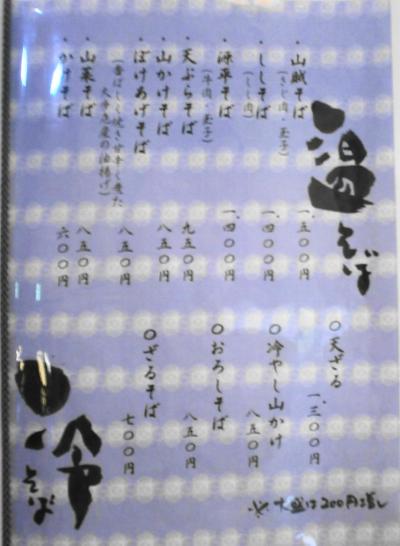 温そば
・山賊そば
(きじ肉・玉子)
一、五〇〇円
・ししそば
(しし肉)
一、四〇〇円
・源平そば
(牛肉・玉子)
一、四〇〇円
・天ぷらそば
九五〇円
・山かけそば
八五〇円
・ぼけあげそば
(香ばしく焼き甘辛く煮た
大歩危産の油揚げ)
八五〇円
・山菜そば
八五〇円
・かけそば
六〇〇円
〇天ざる
一、三〇〇円
〇冷やし山かけ
八五〇円
〇おろしそば
八五〇円
〇ざるそば
七〇〇円
冷そば
※大盛は200円増し